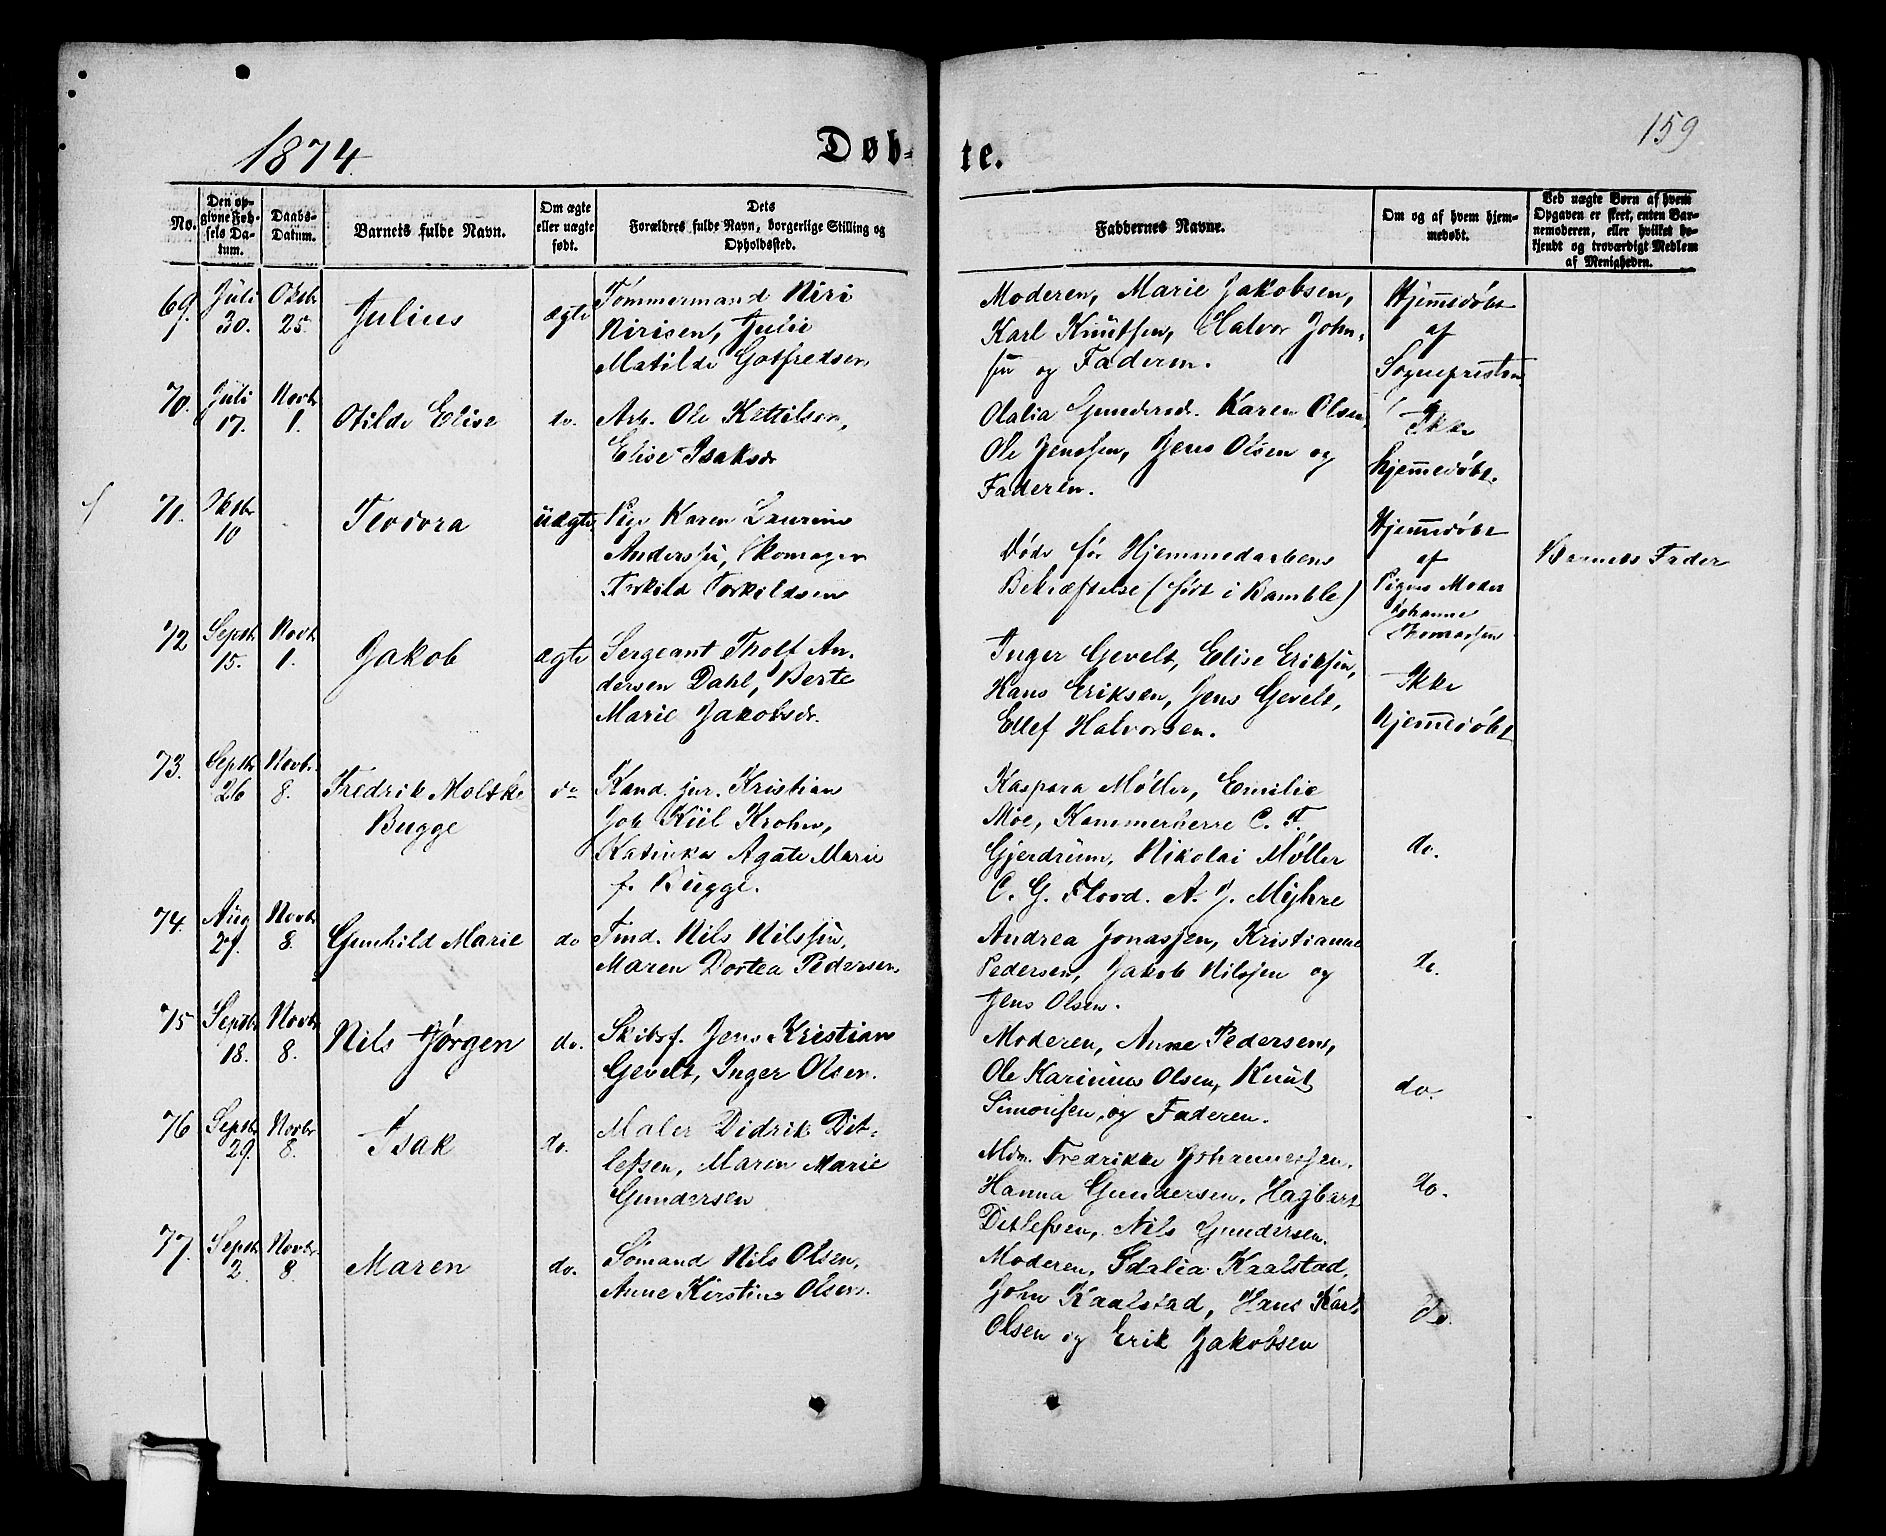 1874.
Døb-
te.
159
No.
Den op-
givne Fød-
sels Da-
tum.
Daabs-
Datum.
Barnets fulde Navn.
Om ægte
eller uægte
født.
Dets
Forældres fulde Navn, borgerlige Stilling og
Opholdssted.
Faddernes Navne.
Om og af hvem hjem-
medøbt.
Ved uægte Børn af hvem
Opgaven er skeet, enten Bar-
nemoderen, eller hvilket be-
kjendt og troværdigt Medlem
af Menigheden.
69.
Juli
30.
Oktbr
25.
Julius
ægte
Tømmermand Niri
Nirisen, Julie
Matilde Gotfredsen
Moderen, Marie Jakobsen,
Karl Knutsen, Halvor John-
sen og Faderen.
Hjemedøbt
af
Sognepresten
70.
Juli
17.
Novbr
1.
Otilde Elise
do.
Arb. Ole Kettilsen,
Elise Isaksdr
Olalia Gundersdr. Karen Olsen,
Ole Jenssen, Jens Olsen og
Faderen.
Ikke
hjemedøbt.
71.
Oktbr
10
Teodora
uægte
Pige Karen Laurine
Anderssen, Skomager
Terkild Torkildsen
Døde før Hjemmedaabens
Bekræftelse (født i Bamble)
Hjemedøbt
af
Pigens Moder
Johanne
Thomassen
Barnets Fader
72
Septbr
15.
Novbr
1.
Jakob
ægte
Sergeant Tholf An-
dersen Dahl, Berte
Marie Jakobsdr.
Inger Gevelt, Elise Eriksen,
Hans Eriksen, Jens Gevelt,
Ellef Halvorsen.
Ikke
hjemedøbt
73.
Septbr
26
Novbr.
8.
Fredrik Moltke
Bugge
do
Kand. jur. Kristian
Job Kiil Krohn,
Katinka Agate Marie
f. Bugge.
Kaspara Møller, Emilie
Moe, Kammerherre C. F.
Gjerdrum, Nikolai Møller
C. G. Flood. A. J. Myhre
do.
74.
Aug
27.
Novbr
8.
Gunhild Marie
do
Tmd. Nils Nilssen,
Maren Dortea Pedersen
Andrea Jonassen, Kristianne
Pedersen, Jakob Nilsen og
Jens Olsen.
do.
75
Septbr
18.
Novbr
8.
Nils Jørgen
do.
Skibsf. Jens Kristian
Gevelt, Inger Olsen.
Moderen, Anne Pedersens,
Ole Karinius Olsen, Knut
Simonsen, og Faderen.
do.
76
Septbr
29.
Novbr
8.
Isak
do.
Maler Didrik Dit-
lefsen, Maren Marie
Gundersen
Mdm. Fredrikke Johannessen,
Hanna Gundersen, Hagbart
Ditlefsen, Nils Gundersen.
do.
77.
Septbr
2.
Novbr.
8
Maren
do.
Sømand Nils Olsen,
Anne Kirstine Olsen.
Moderen, Idalia Kaalstad,
John Kaalstad, Hans Karl
Olsen og Erik Jakobsen
do.